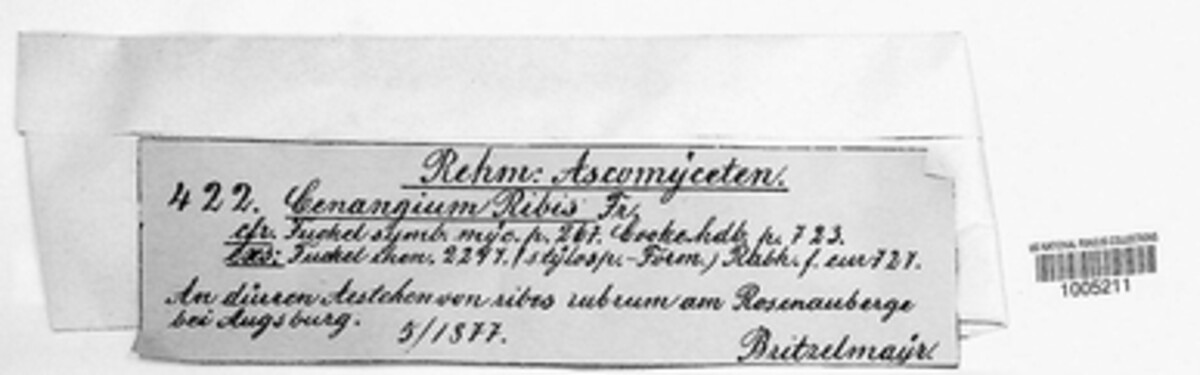 Rehm: Ascomÿceten.
422. Cenangium Ribis Fr.
cfr. Fuckel symb. mÿc. p. 267. Cooke hdb. p. 723.
exs: Fuckel rhen. 2297. (stÿlosp.-Form.) Rabh. f. eur 727.
An dürren Aestchen von ribes rubrum am Rosenauberge
bei Augsburg.
5/1877.
Britzelmaÿr.
US NATIONAL FUNGUS COLLECTIONS
1005211